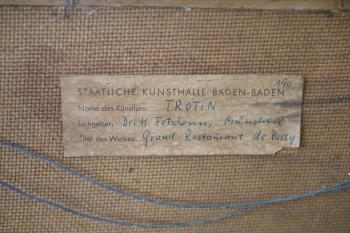 190
STAATLICHE KUNSTHALLE BADEN-BADEN
Name des Künstlers: TROTIN
Leihgeber: Dr. H. München
Titel des Werkes: Grand Restaurant de Passy